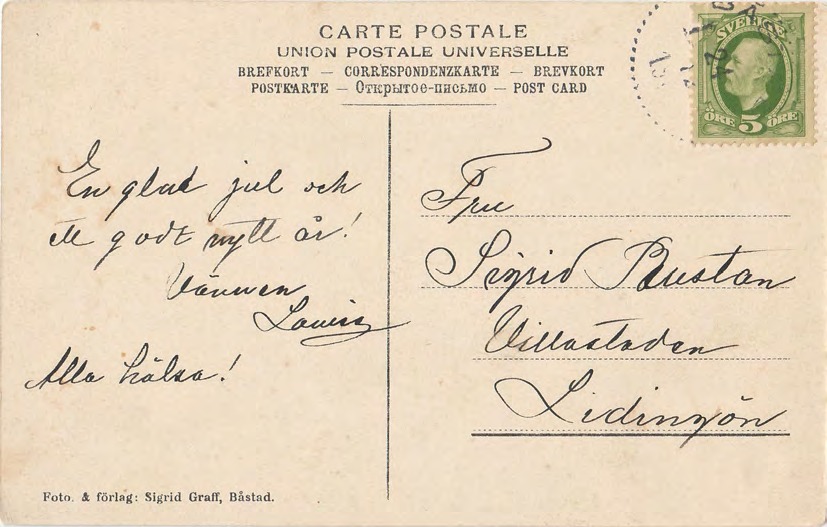 CARTE POSTALE
UNION POSTALE UNIVERSELLE
BREFKORT — CORRESPONDENZKARTE — BREVKORT
POSTKARTE — Открытое-письмо — POST CARD
SVERIGE
ÖRE 5 ÖRE
En glad jul och
ett godt nytt år!
Vännen
Alla hälsa!
Fru
Sigrid
Villastaden
Lidingön
Foto. & förlag: Sigrid Graff, Båstad.